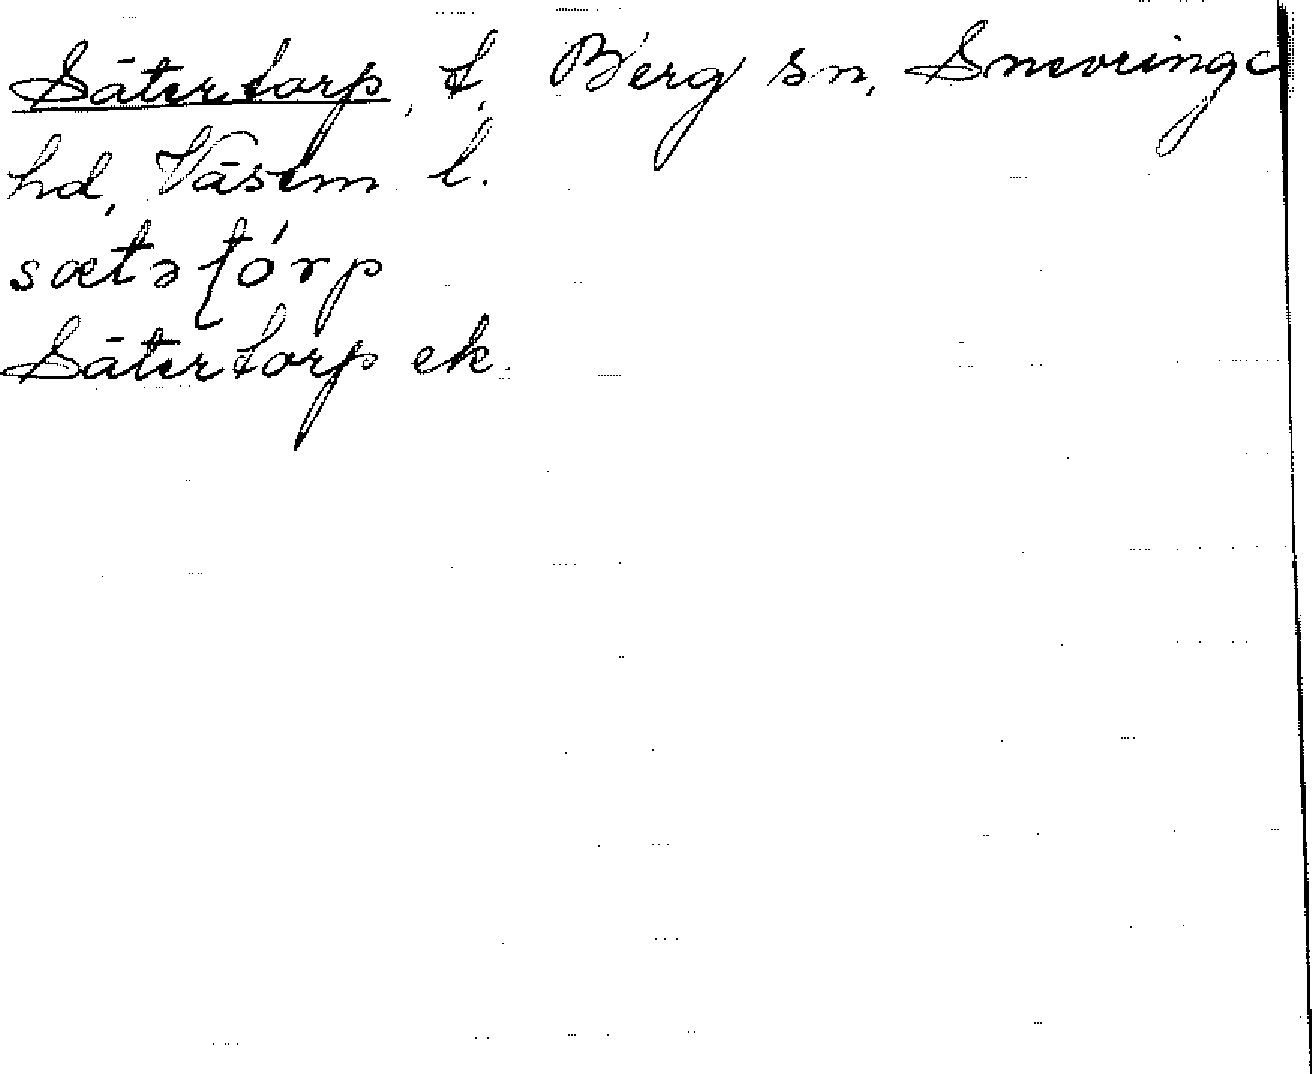 Sätertorp, t, Berg sn, Snevringe
hd, Väst.m l.
sætəʈórp
Sätertorp ek.